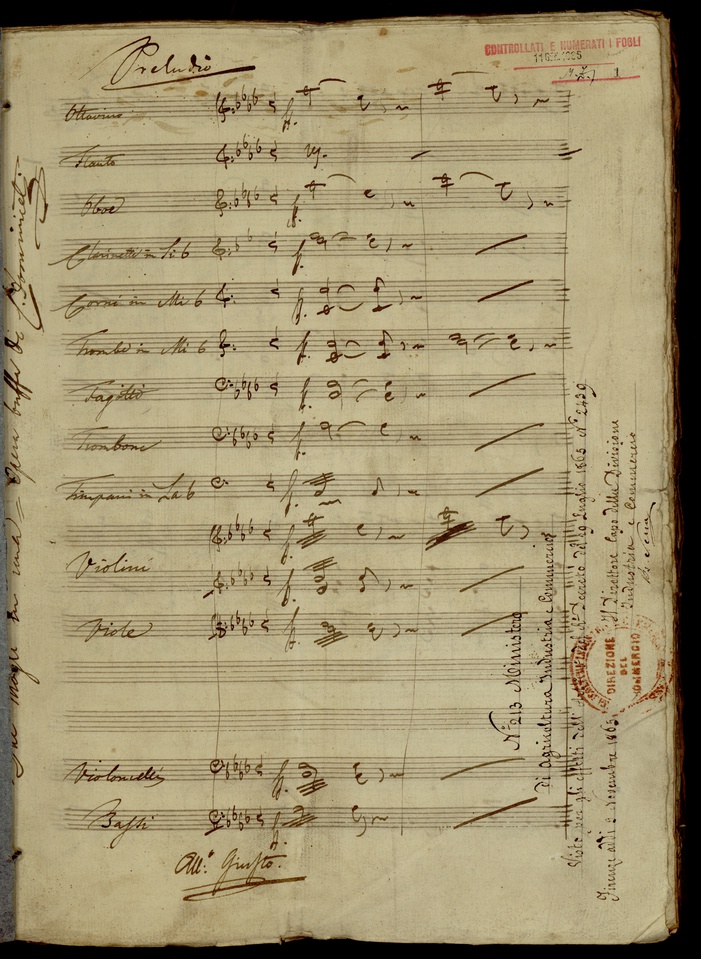 Preludio
CONTROLLATI E NUMERATI I FOGLI
1
Ottavino
Flauto
Oboe
Clarinetti in Si b
Corni in Mi b
Trombe in Mi b
Fagotti
Trombone
Timpani in La b
Violini
Viole
Violoncelli
Bassi
All.º Giusto.
Due mogli in una = Opera buffa di C. Dominiceti
Nº 213 Ministero
di Agricoltura Industria e Commercio
Visto per gli effetti dell' Decreto del 29 Luglio 1865 Nº 2439
Firenze addi 2 Novembre 1865
Il Direttore Capo della Divisione
Industria e Commercio
DIREZIONE
DEL
COMMERCIO